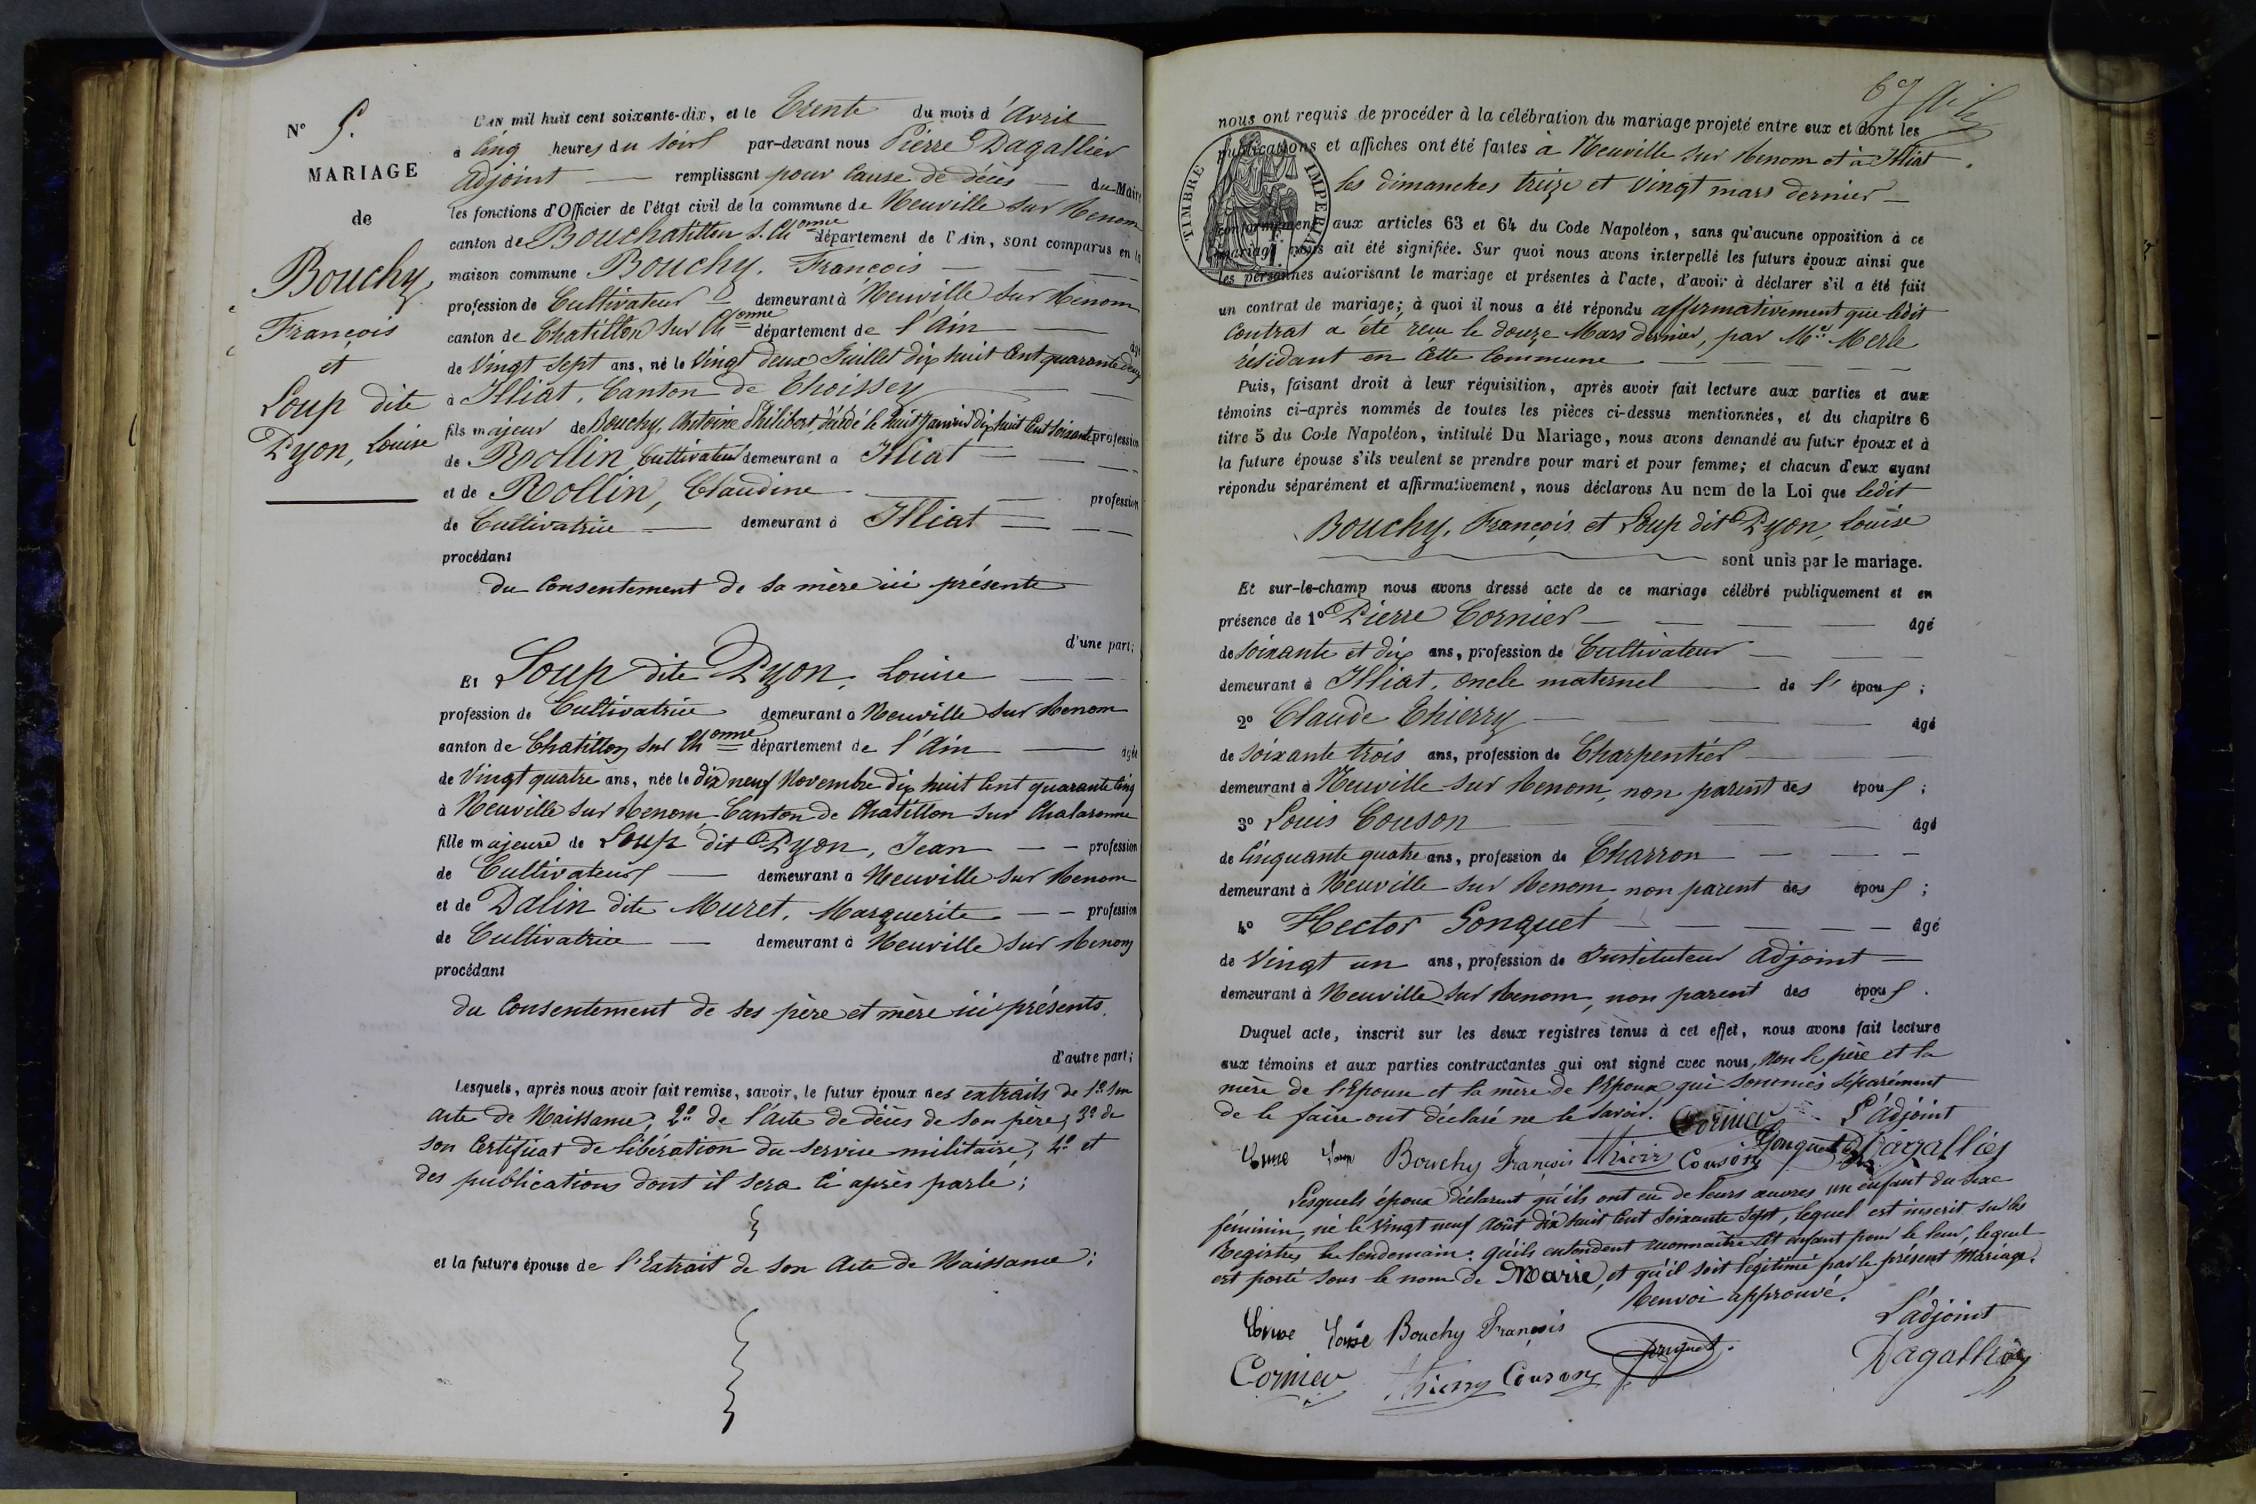 N° 5.
MARIAGE
de
Bouchy,
François
et
Loup dite
Pyon, Louise
L'AN mil huit cent soixante-dix, et le Trente du mois d'Avril
à Cinq heures du Soir par-devant nous Pierre Dagallier
Adjoint — remplissant pour Cause de décès — du Maire
les fonctions d'Officier de l'état civil de la commune de Neuville sur Renom
canton de Bouchatillon s. Ch.onne département de l'Ain, sont comparus en la
maison commune Bouchy, François —
profession de Cultivateur — demeurant à Neuville sur Renom
canton de Chatillon sur Ch.onne département de l'Ain — âgé
de Vingt Sept ans, né le Vingt deux Juillet dix huit Cent quarante deux
à Illiat, Canton de Thoissey
fils majeur de Bouchy, Antoine Philibert, décédé le huit Janvier Dix huit Cent Soixante profession
de Rollin Cultivateur demeurant à Illiat —
et de Rollin, Claudine — profession
de Cultivatrice — demeurant à Illiat —
procédant
du Consentement de sa mère ici présente
d'une part;
Et Loup dite Pyon, Louise —
profession de Cultivatrice demeurant à Neuville sur Renom
canton de Chatillon sur Ch.onne département de l'Ain — âgée
de Vingt quatre ans, née le dix neuf Novembre dix huit Cent quarante Cinq
à Neuville sur Renom, Canton de Chatillon sur Chalaronne
fille majeure de Loup dit Pyon, Jean — profession
de Cultivateur — demeurant à Neuville sur Renom
et de Dalin dite Muret, Marguerite — profession
de Cultivatrice — demeurant à Neuville sur Renom
procédant
du Consentement de ses père et mère ici présents.
d'autre part;
Lesquels, après nous avoir fait remise, savoir, le futur époux des extraits de 1° Son
acte de Naissance; 2° de l'Acte de décès de son père; 3° de
son Certificat de libération du service militaire; 4° et
des publications dont il sera ci après parlé;
et la future épouse de l'Extrait de son Acte de Naissance;
67
TIMBRE IMPERIAL
nous ont requis de procéder à la célébration du mariage projeté entre eux et dont les
publications et affiches ont été faites à Neuville sur Renom et à Illiat.
les dimanches treize et vingt mars dernier —
conformément aux articles 63 et 64 du Code Napoléon, sans qu'aucune opposition à ce
mariage nous ait été signifiée. Sur quoi nous avons interpellé les futurs époux ainsi que
les personnes autorisant le mariage et présentes à l'acte, d'avoir à déclarer s'il a été fait
un contrat de mariage; à quoi il nous a été répondu affirmativement que ledit
Contrat a été reçu le douze Mars dernier, par Me Merle
résidant en Cette Commune —
Puis, faisant droit à leur réquisition, après avoir fait lecture aux parties et aux
témoins ci-après nommés de toutes les pièces ci-dessus mentionnées, et du chapitre 6
titre 5 du Code Napoléon, intitulé Du Mariage, nous avons demandé au futur époux et à
la future épouse s'ils veulent se prendre pour mari et pour femme; et chacun d'eux ayant
répondu séparément et affirmativement, nous déclarons Au nom de la Loi que ledit
Bouchy, François et Loup dite Pyon, Louise
sont unis par le mariage.
Et sur-le-champ nous avons dressé acte de ce mariage célébré publiquement et en
présence de 1° Pierre Cornier — âgé
de Soixante et dix ans, profession de Cultivateur —
demeurant à Illiat, oncle maternel — de l'époux;
2° Claude Thierry — âgé
de soixante trois ans, profession de Charpentier —
demeurant à Neuville sur Renom, non parent des époux;
3° Louis Couson — âgé
de Cinquante quatre ans, profession de Charron —
demeurant à Neuville sur Renom, non parent des époux;
4° Hector Gonguet — âgé
de Vingt un ans, profession de Instituteur Adjoint —
demeurant à Neuville sur Renom, non parent des époux.
Duquel acte, inscrit sur les deux registres tenus à cet effet, nous avons fait lecture
aux témoins et aux parties contractantes qui ont signé avec nous, Non le père et la
mère de l'Epouse et la mère de l'Epoux qui sommés séparément
de le faire ont déclaré ne le Savoir. Cornier L'Adjoint
Bouchy François Thierry Couson Gonguet Dagallier
Lesquels époux déclarent qu'ils ont eu de leurs œuvres un enfant du sexe
féminin, né le Vingt neuf Août Dix huit Cent Soixante Sept, lequel est inscrit sur les
Registres le lendemain; qu'ils entendent reconnaître cet enfant pour le leur, lequel
est porté sous le nom de Marie, et qu'il soit légitimé par le présent Mariage.
Renvoi approuvé.
Bouchy François Gonguet L'adjoint
Cornier Thierry Couson Dagallier